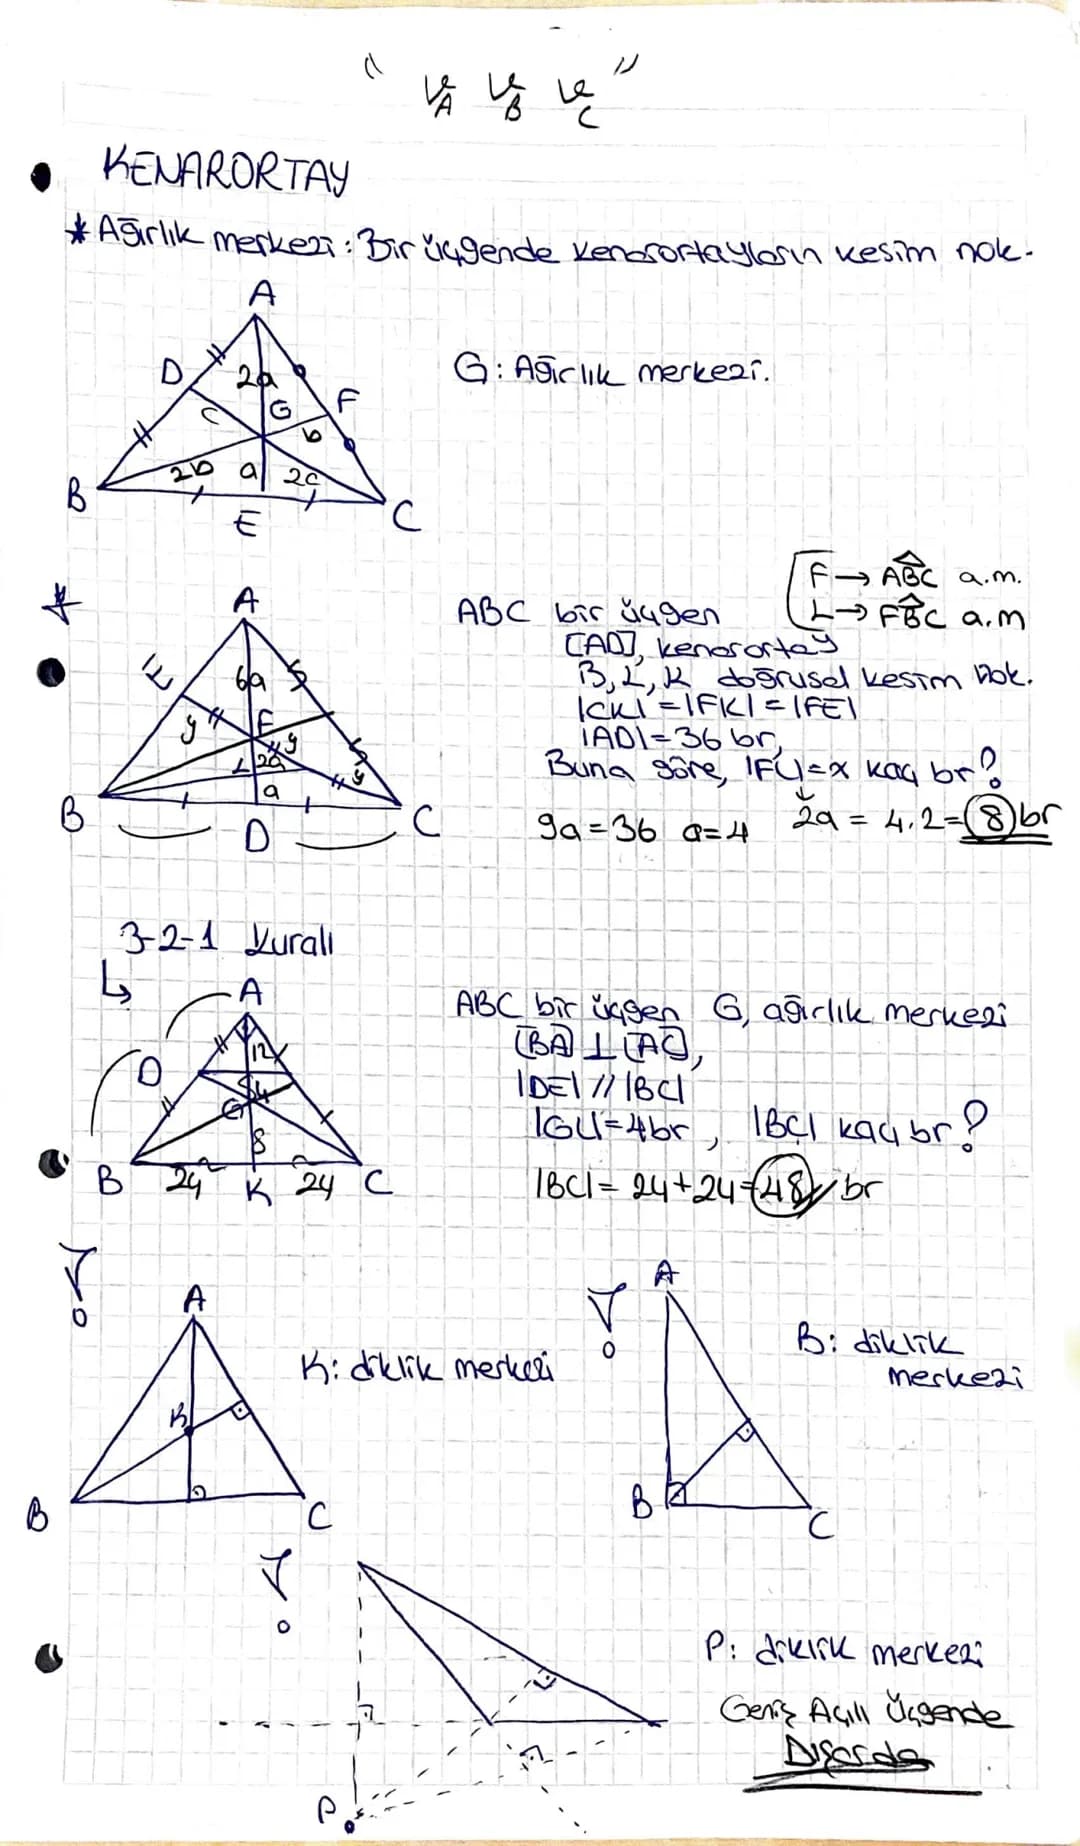 " VA VB VC "
KENARORTAY
* Ağırlık merkezi : Bir üçgende kenarortayların kesim nok.
A
D 2a F
c G b
2b a 2c
B E C
G : Ağırlık merkezi.
*
A
E 6a
y F y
L 2a y
a
B D C
F → ABC a.m.
L → FBC a.m
ABC bir üçgen
[AD], kenarortay
B, L, K doğrusal kesim nok.
|CK| = |FK| = |FE|
|AD| = 36 br,
Buna göre, |FL| = x kaç br?
9a = 36 a = 4 2a = 4.2 = 8 br
3-2-1 Kuralı
A
D 12
G 4
8
B 24 K 24 C
ABC bir üçgen G, ağırlık merkezi
[BA] ⊥ [AC],
|DE| // |BC|
|GL| = 4br , |BC| kaç br?
|BC| = 24 + 24 = 48 br
A
K
B C
K : diklik merkezi
A
B C
B : diklik
merkezi
P : diklik merkezi
Geniş Açılı Üçgende
Dışarda
P